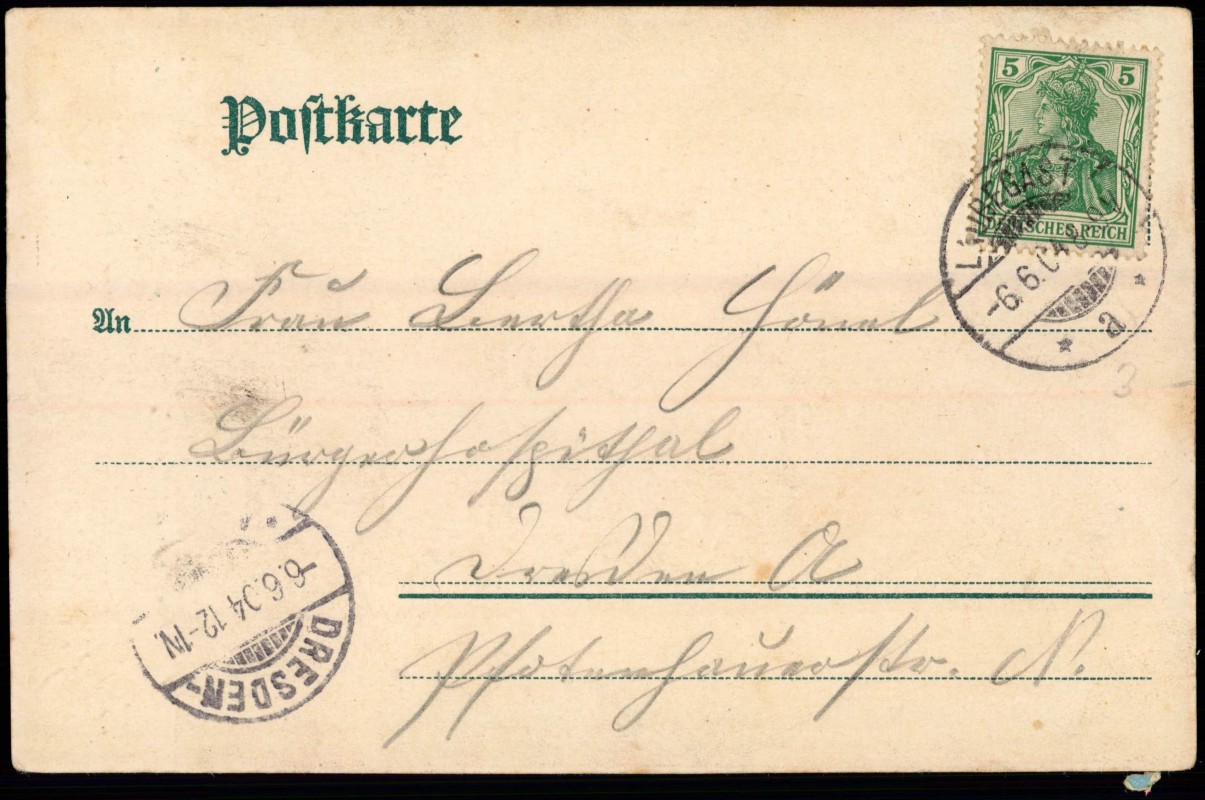 Postkarte
5 5
DEUTSCHES REICH
LAUBEGAST
-6.6.04 8-9V
* a *
An Frau Bertha Hönel
3
Bürgerhospithal
Dresden A
Pfotenhauerstr. N.
-6.6.04 12-1N.
DRESDEN-